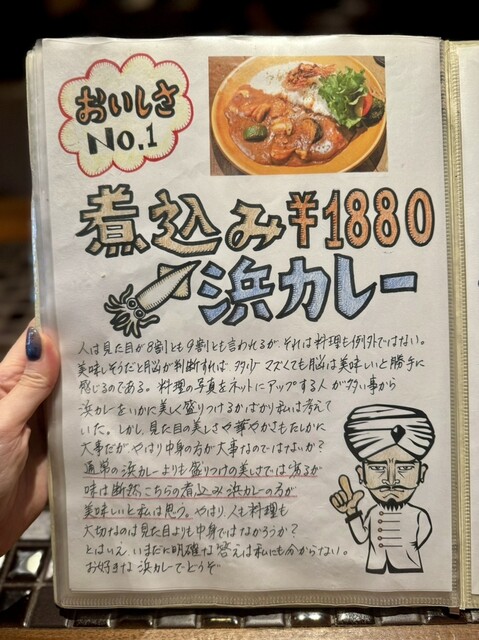 おいしさ
No.1
煮込み¥1880
浜カレー
人は見た目が8割とも9割とも言われるが、それは料理も例外ではない。
美味しそうだと脳が判断すれば、多少マズくても脳は美味しいと勝手に
感じるのである。料理の写真をネットにアップする人が多い事から
浜カレーをいかに美しく盛りつけるかばかり私は考えて
いた。しかし、見た目の美しさや華やかさもたしかに
大事だが、やはり中身の方が大事なのではないか?
通常の浜カレーよりも盛りつけの美しさでは劣るが
味は断然こちらの煮込み浜カレーの方が
美味しいと私は思う。やはり、人も料理も
大切なのは見た目よりも中身ではなかろうか?
とはいえ、いまだに明確な答えは私にも分からない。
お好きな浜カレーでどうぞ